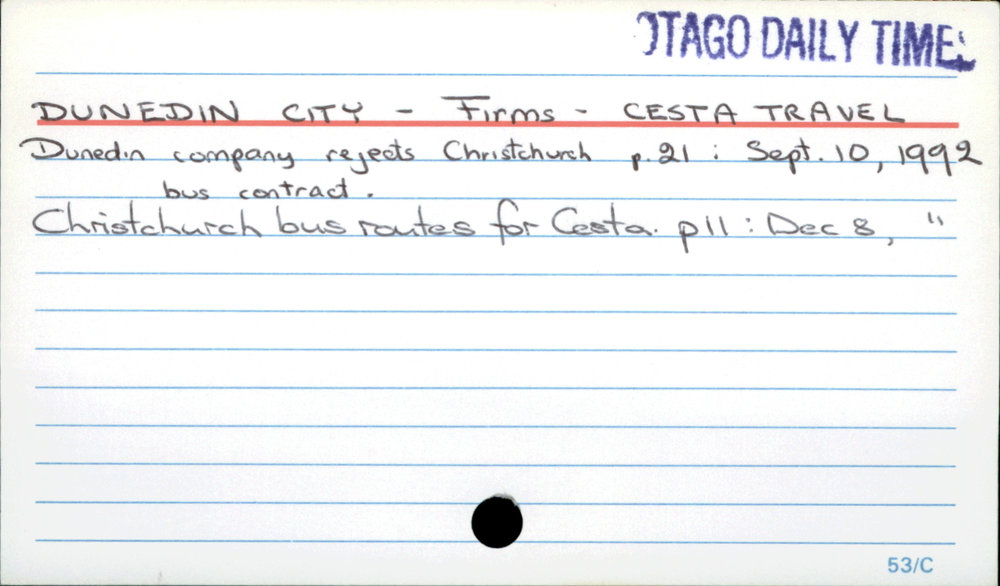 OTAGO DAILY TIMES
DUNEDIN CITY - Firms - CESTA TRAVEL
Dunedin company rejects Christchurch p.21 : Sept. 10, 1992
bus contract.
Christchurch bus routes for Cesta. p11 : Dec 8, "
53/C